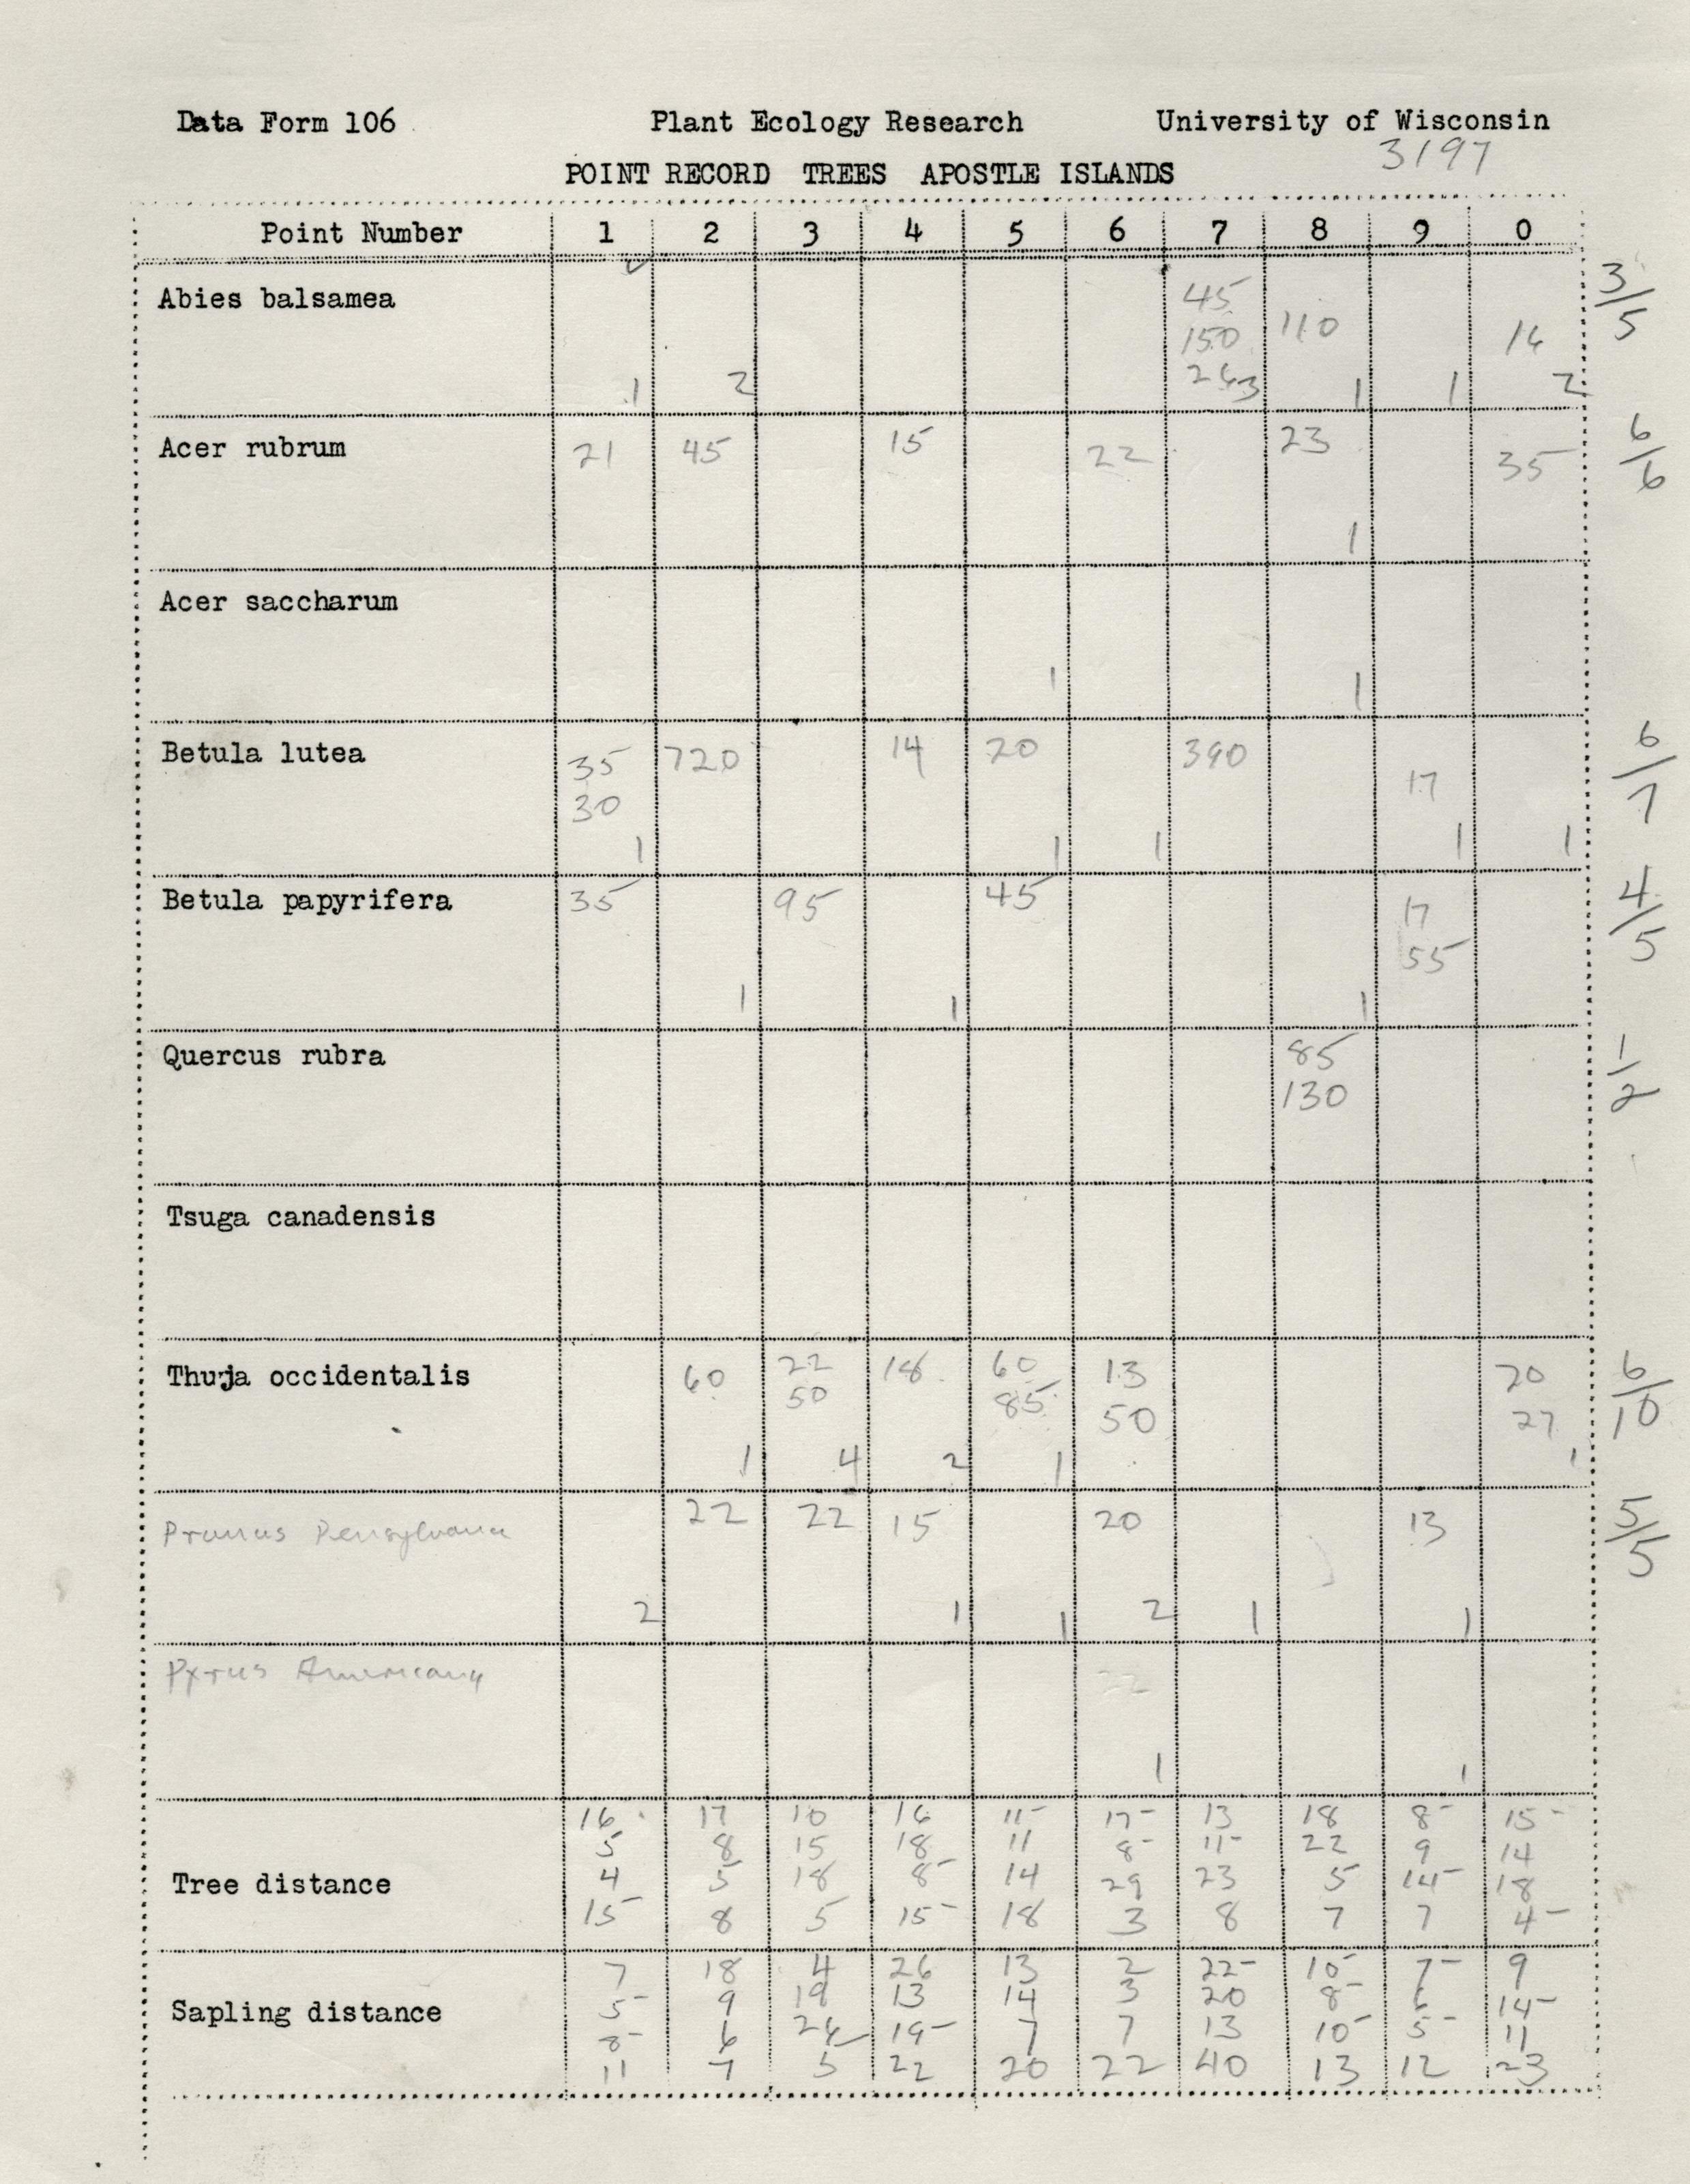 Data Form 106 Plant Ecology Research University of Wisconsin
3197
POINT RECORD TREES APOSTLE ISLANDS
Point Number 1 2 3 4 5 6 7 8 9 0
Abies balsamea 45 3/5
150 110 16
1 2 26 3 1 1 2
Acer rubrum 21 45 15 22 23 35 6/6
1
Acer saccharum
1 1
Betula lutea 35 720 14 20 390 17 6/7
30
1 1 1 1 1
Betula papyrifera 35 95 45 17 4/5
55
1 1 1
Quercus rubra 85 1/2
130
Tsuga canadensis
Thuja occidentalis 60 22 18 60 13 20 6/10
50 85 50 27
1 4 2 1 1
Prunus Pensylvanica 22 22 15 20 13 5/5
2 1 1 2 1 1
Pyrus Americana 22
1 1
16 17 10 16 11- 17- 13 18 8- 15-
5 8 15 18 11 8- 11- 22 9 14
Tree distance 4 5 18 8- 14 29 23 5 14- 18
15- 8 5 15- 18 3 8 7 7 4-
7 18 4 26 13 2 22- 10- 7- 9
5- 9 19 13 14 3 20 8- 6 14-
Sapling distance 8- 6 26- 19- 7 7 13 10- 5- 11
11 7 5 22 20 22 40 13 12 23